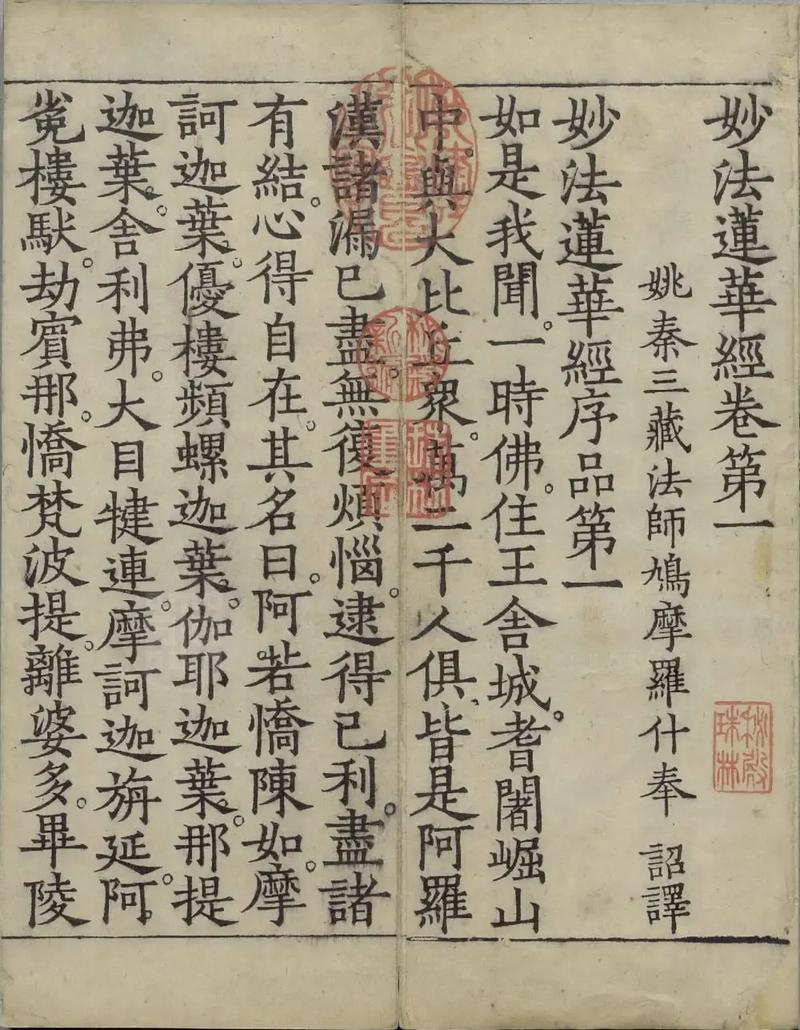 妙法蓮華經卷第一
姚秦三藏法師鳩摩羅什奉　詔譯
妙法蓮華經序品第一
如是我聞。一時佛。住王舍城。耆闍崛山
中。與大比丘衆。萬二千人俱。皆是阿羅
漢諸漏已盡。無復煩惱。逮得已利。盡諸
有結。心得自在。其名曰。阿若憍陳如。摩
訶迦葉。優樓頻螺迦葉。伽耶迦葉。那提
迦葉。舍利弗。大目犍連。摩訶迦旃延。阿
㝹樓馱。劫賓那。憍梵波提。離婆多。畢陵